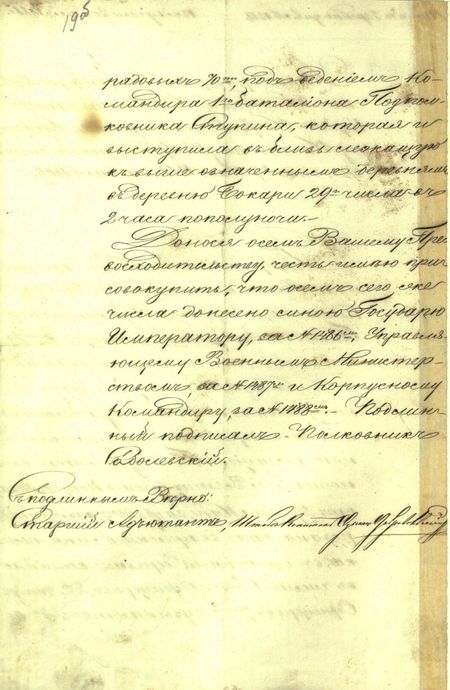 19об
рядовыхъ 70ти, подъ веденіемъ Ко-
мандира 1го баталіона Подпол-
ковника Ступина, которая и
выступила въ близь лежащую
къ выше означеннымъ деревнямъ
въ деревню Сокари 29го числа въ
2 часа пополуночи.-
Донося о семъ Вашему Пре-
восходительству, честь имѣю при-
совокупить, что о семъ сего же
числа донесено мною Государю
Императору, за № 1486мъ, Управля-
ющему Военнымъ Министер-
ствомъ, за № 1487мъ и Корпусному
Командиру, за № 1488мъ.- Подлин-
ный подписалъ Полковникъ
Съ подлиннымъ Вѣрно:
Старшій Адъютантъ, Штабсъ-Капитанъ